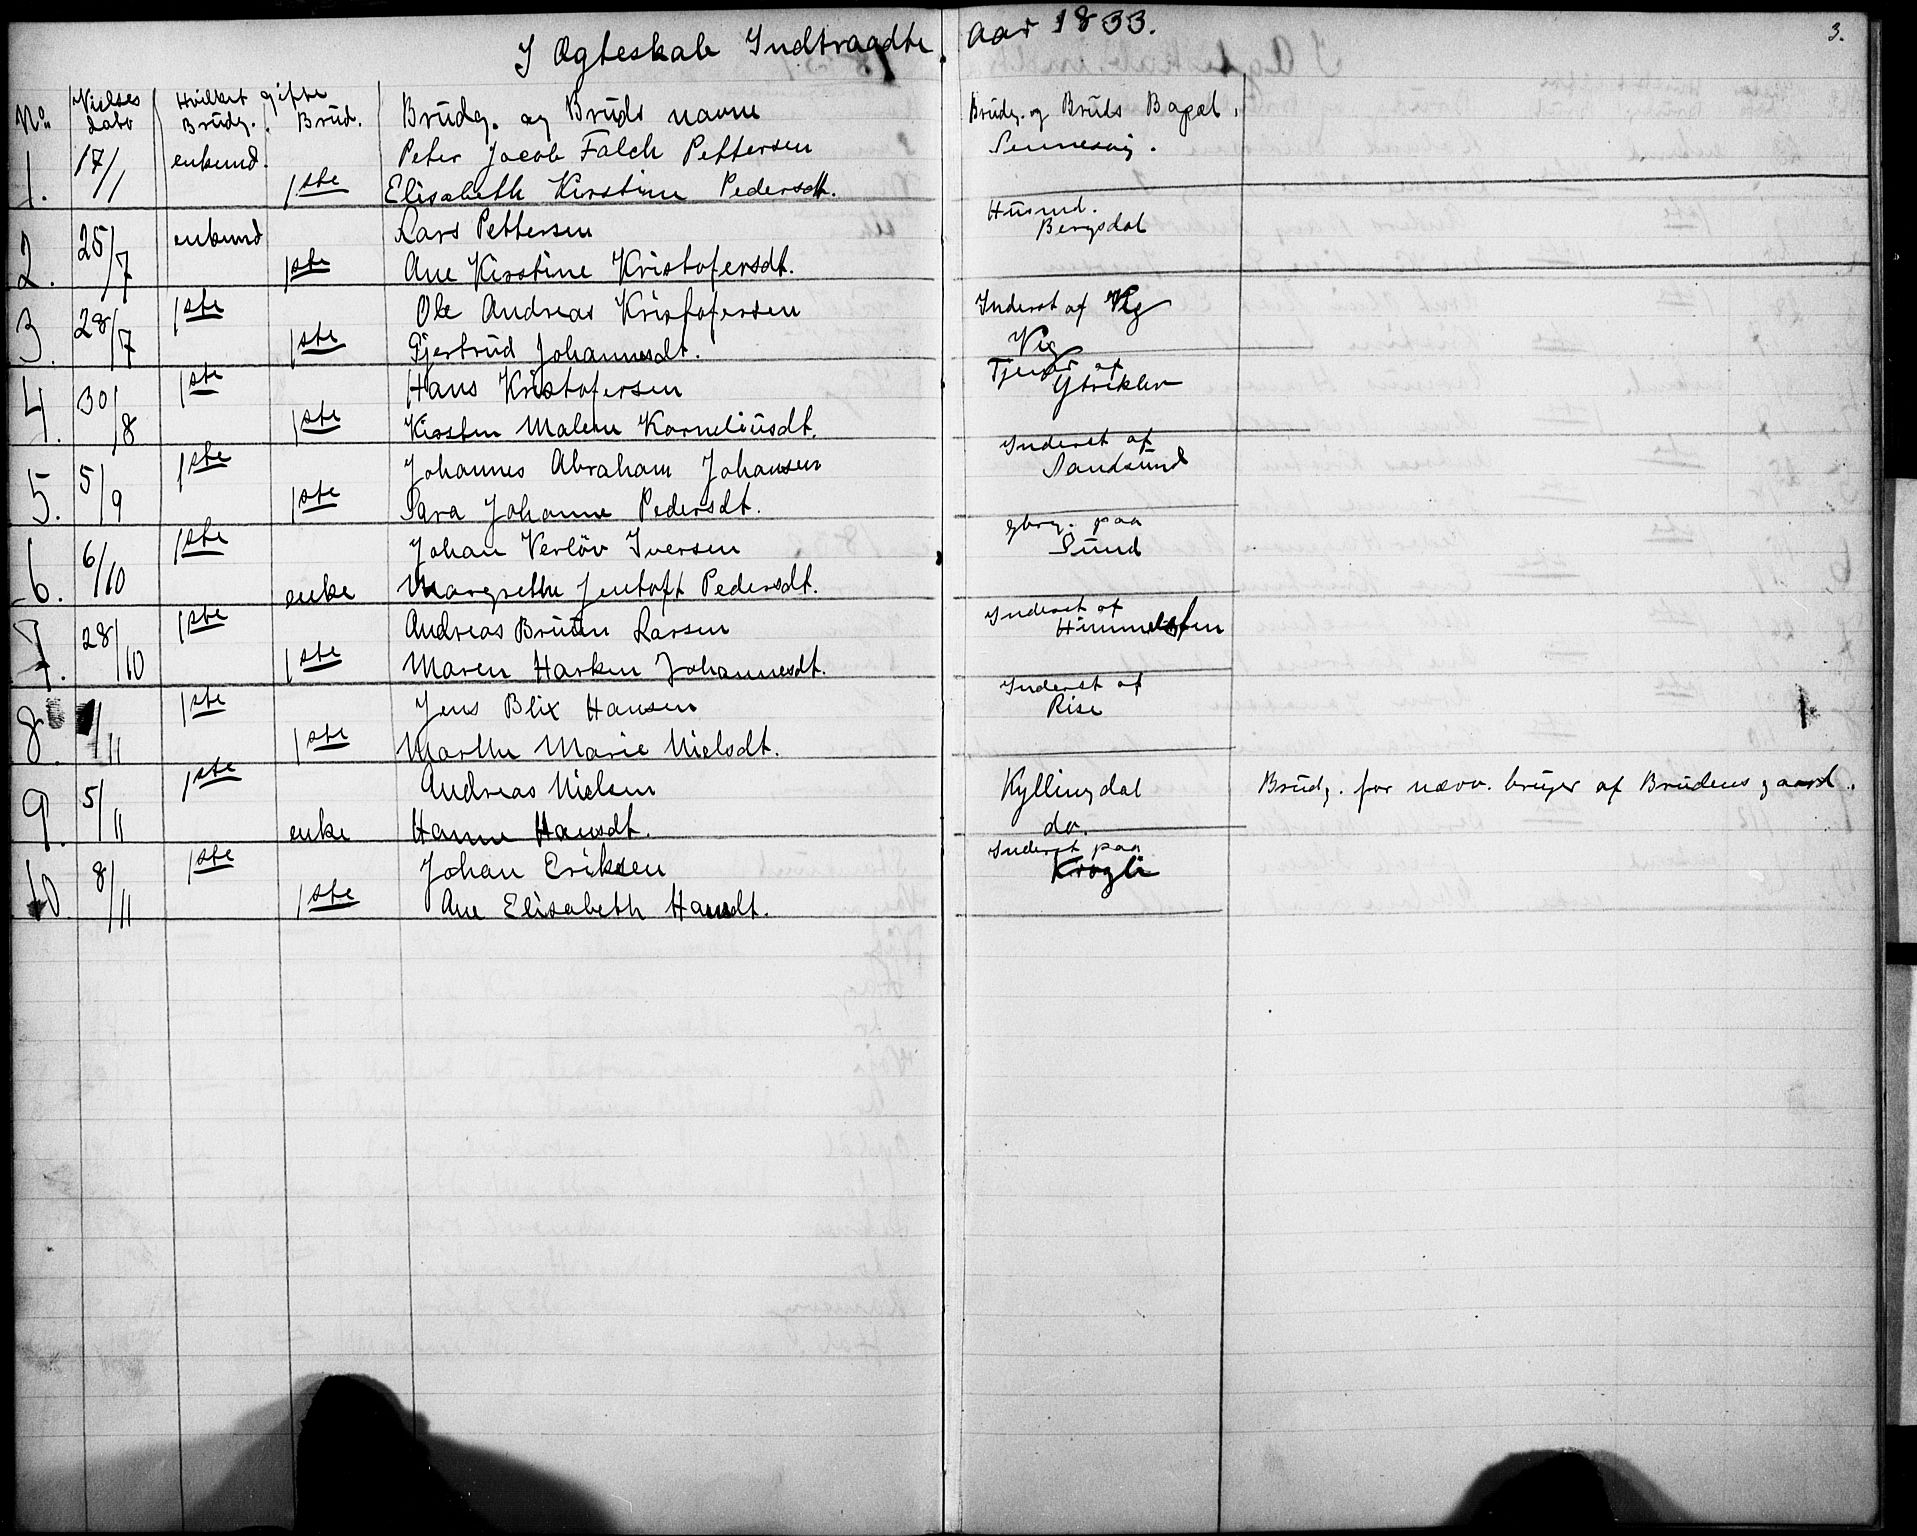 I Ægteskab Indtraadte aar 1833.
3.
No. Vielses dato Hvilket gifte Brudg. Brud. Brudg. og Bruds navne Brudg. og Bruds Bopæl.
1. 17/1 enkemd. Peter Jacob Falch Pettersen
1ste Elisabeth Kirstine Pedersdt.
2. 25/7 enkemd Lars Pettersen Husmd. Bergsdal
1ste Ane Kirstine Kristofersdt.
3. 28/7 1ste Ole Andreas Kristofersen Inderst af Vig
1ste Gjertrud Johannesdt. Vig
4. 30/8 1ste Hans Kristofersen Tjener af Ytreklev
1ste Kirsten Malene Korneliusdt.
5. 5/9 1ste Johannes Abraham Johansen Inderst af Sandsund
1ste Sara Johanne Pedersdt.
6. 6/10 1ste Johan Verløv Iversen gbrg. paa Sund
enke Margrethe Jentoft Pedersdt.
7. 28/10 1ste Andreas Bruun Larsen Inderst af
1ste Maren Harken Johannesdt.
8. 1/11 1ste Jens Blix Hansen Inderst af Rise
1ste Marthe Marie Nielsdt.
9. 5/11 1ste Andreas Nielsen Kyllingdal Brudg. for nærv. bruger af Brudens gaard.
enke Hanne Hansdt. do.
10 8/11 1ste Johan Eriksen Inderst paa Krogli
1ste Ane Elisabeth Hansdt.